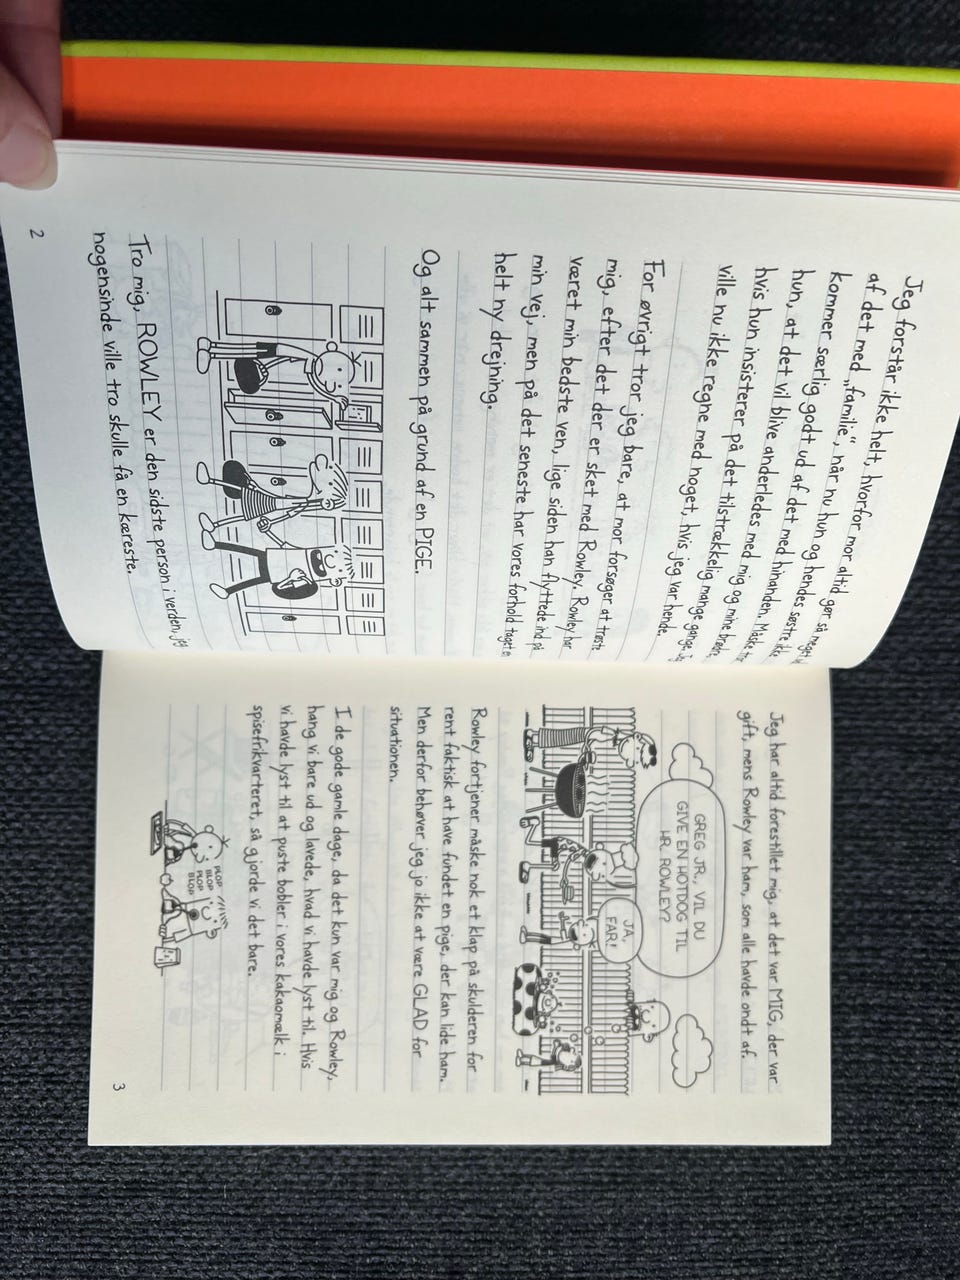 Jeg forstår ikke helt, hvorfor mor altid gør så meget
af det med „familie“, når nu hun og hendes søstre ikke
kommer særlig godt ud af det med hinanden. Måske
hun, at det vil blive anderledes med mig og mine brødre,
hvis hun insisterer på det tilstrækkelig mange gange.
ville nu ikke regne med noget, hvis jeg var hende.
For øvrigt tror jeg bare, at mor forsøger at trøste
mig, efter det der er sket med Rowley. Rowley har
været min bedste ven, lige siden han flyttede ind på
min vej, men på det seneste har vores forhold taget en
helt ny drejning.
Og alt sammen på grund af en PIGE.
Tro mig, ROWLEY er den sidste person i verden, jeg
nogensinde ville tro skulle få en kæreste.
2
Jeg har altid forestillet mig, at det var MIG, der var
gift, mens Rowley var ham, som alle havde ondt af.
GREG JR., VIL DU
GIVE EN HOTDOG TIL
HR. ROWLEY?
JA,
FAR!
Rowley fortjener måske nok et klap på skulderen for
rent faktisk at have fundet en pige, der kan lide ham.
Men derfor behøver jeg jo ikke at være GLAD for
situationen.
I de gode gamle dage, da det kun var mig og Rowley,
hang vi bare ud og lavede, hvad vi havde lyst til. Hvis
vi havde lyst til at puste bobler i vores kakaomælk i
spisefrikvarteret, så gjorde vi det bare.
PLOP
BLOP
PLOP
BLOP
3